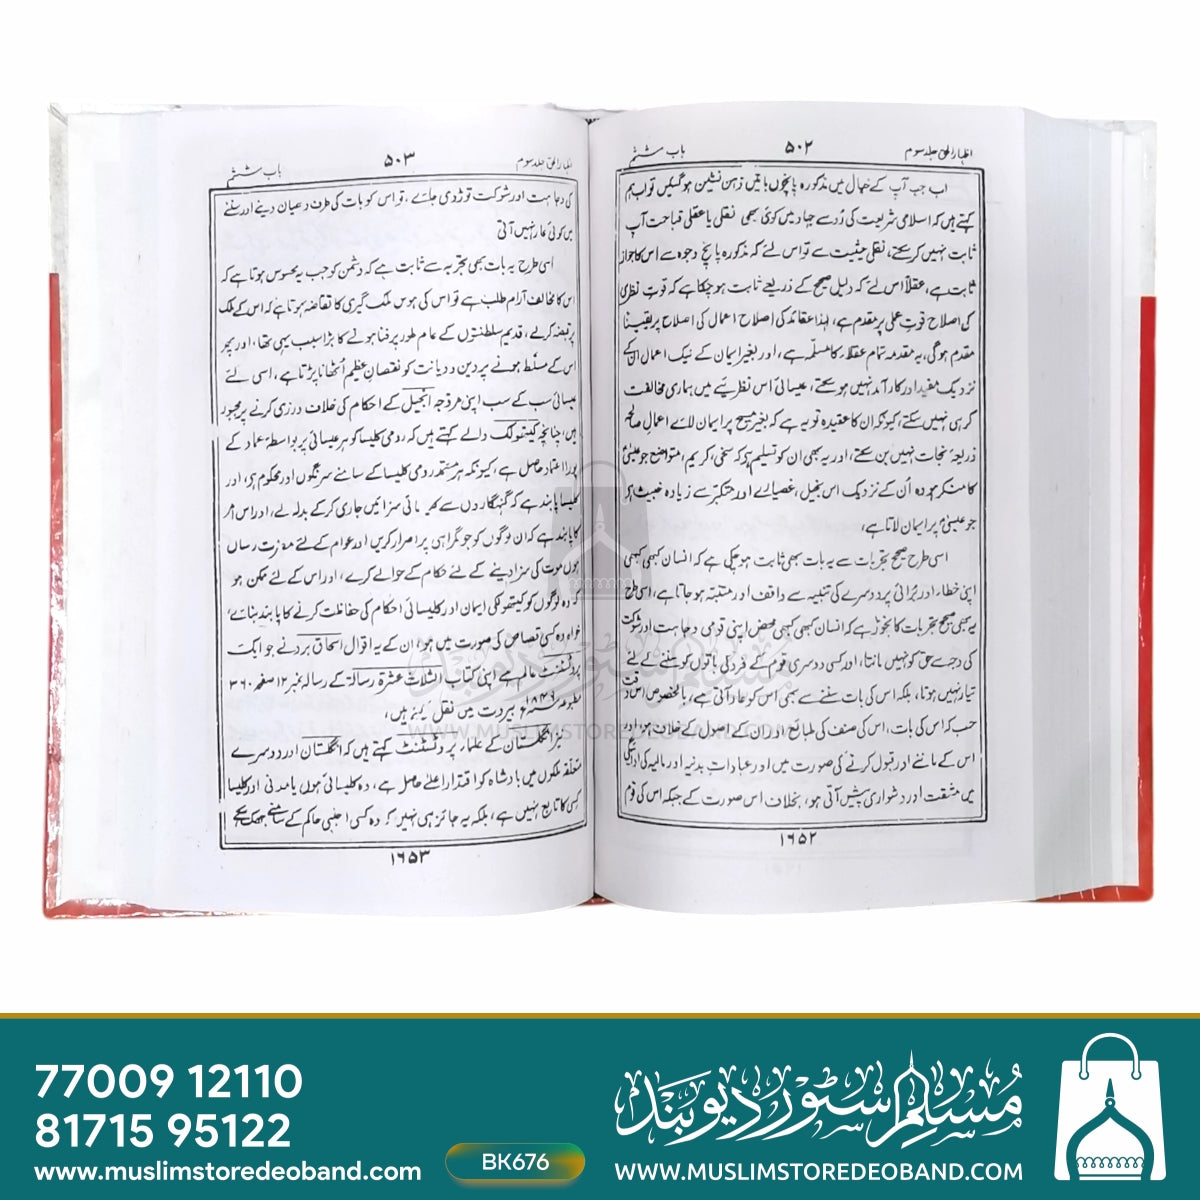 اظہار الحق جلد سوم ۵۰۲ باب ششم
اب جب آپ کے خیال میں مذکورہ پانچوں باتیں ذہن نشین ہو گئیں تو اب ہم
کہتے ہیں کہ اسلامی شریعت کی رُو سے جہاد میں کوئی بھی نقلی یا عقلی قباحت آپ
ثابت نہیں کر سکتے، نقلی حیثیت سے تو اس لئے کہ مذکورہ پانچ وجوہ سے اس کا جواز
ثابت ہے، عقلاً اس لئے کہ دلیل صحیح کے ذریعے ثابت ہو چکا ہے کہ قوتِ نظری
کی اصلاح قوتِ عملی پر مقدم ہے، لہٰذا عقائد کی اصلاح اعمال کی اصلاح پر یقیناً
مقدم ہو گی، یہ مقدمہ تمام عقلاء کا مسلّمہ ہے، اور بغیر ایمان کے نیک اعمال ان کے
نزدیک مفید اور کارآمد نہیں ہو سکتے، عیسائی اس نظریئے میں ہماری مخالفت
کر ہی نہیں سکتے، کیونکہ ان کا عقیدہ تو یہ ہے کہ بغیر مسیح پر ایمان لائے اعمالِ صالحہ
ذریعۂ نجات نہیں بن سکتے، اور یہ بھی ان کو تسلیم ہے کہ سخی، کریم، متواضع جو عیسیٰؑ
کا منکر ہو وہ اُن کے نزدیک اس بخیل، غصیالے اور متکبّر سے زیادہ خبیث ہے
جو عیسیٰؑ پر ایمان لاتا ہے،
اسی طرح صحیح تجربات سے یہ بات بھی ثابت ہو چکی ہے کہ انسان کبھی کبھی
اپنی خطاء اور بُرائی پر دوسرے کی تنبیہ سے واقف اور متنبّہ ہو جاتا ہے، اسی طرح
یہ بھی صحیح تجربات کا نچوڑ ہے کہ انسان کبھی کبھی محض اپنی قومی وجاہت اور شوکت
کی وجہ سے حق کو نہیں مانتا، اور کسی دوسری قوم کے فرد کی باتوں کو سننے کے لئے
تیار نہیں ہوتا، بلکہ اس کی بات سننے سے بھی اس کو عار آتی ہے، بالخصوص اس وقت
جب کہ اس کی بات، اس کی صنف کی طبائع اور ان کے اصول کے خلاف ہو، اور
اس کے ماننے اور قبول کرنے کی صورت میں اور عباداتِ بدنیہ اور مالیہ کی ادائیگی
میں مشقت اور دشواری پیش آتی ہو، بخلاف اس صورت کے جبکہ اس کی قوم
۱۶۵۲
اظہار الحق جلد سوم ۵۰۳ باب ششم
کی وجاہت اور شوکت توڑ دی جائے، تو اس کو بات کی طرف دھیان دینے اور سننے
میں کوئی عار نہیں آتی
اسی طرح یہ بات بھی تجربہ سے ثابت ہے کہ دشمن کو جب یہ محسوس ہوتا ہے کہ
اس کا مخالف آرام طلب ہے تو اس کی ہوسِ ملک گیری کا تقاضہ ہوتا ہے کہ اس کے ملک
پر قبضہ کر لے، قدیم سلطنتوں کے عام طور پر فنا ہونے کا بڑا سبب یہی تھا، اور پھر
اس کے مسلّط ہونے پر دین و دیانت کو نقصانِ عظیم اُٹھانا پڑتا ہے، اسی لئے
عیسائی سب کے سب اپنی مروّجہ انجیل کے احکام کی خلاف ورزی کرنے پر مجبور
ہیں، چنانچہ کیتھولک والے کہتے ہیں کہ رومی کلیسا کو ہر عیسائی پر بواسطۂ عماد کے
پورا اعتماد حاصل ہے، کیونکہ ہر معتمد رومی کلیسا کے سامنے سرنگوں اور محکوم ہے، اور
کلیسا پابند ہے کہ گنہگاروں سے کلیسائی سزائیں جاری کر کے بدلہ لے، اور اس امر
کا پابند ہے کہ ان لوگوں کو جو گمراہی پر اصرار کریں اور عوام کے لئے مضرت رساں
ہوں موت کی سزا دینے کے لئے حکام کے حوالے کرے، اور اس کے لئے ممکن ہو
کہ وہ لوگوں کو کیتھولکی ایمان اور کلیسائی احکام کی حفاظت کرنے کا پابند بنائے،
خواہ وہ کسی قصاص کی صورت میں ہو، ان کے یہ اقوال اسحاق برد نے جو ایک
پروٹسٹنٹ عالم ہے اپنی کتاب الثلاث عشرۃ رسالۃ کے رسالہ نمبر ۱۲ صفحہ ۳۶۰
مطبوعہ ۱۸۴۹ء بیروت میں نقل کئے ہیں،
نیز انگلستان کے علماء پروٹسٹنٹ کہتے ہیں کہ انگلستان اور دوسرے
متعلقہ ملکوں میں بادشاہ کو اقتدارِ اعلیٰ حاصل ہے، وہ کلیسائی ہوں یا مدنی، اور کلیسا
کسی کا تابع نہیں ہے، بلکہ یہ جائز ہی نہیں کہ وہ کسی اجنبی حاکم کے سامنے جھک سکے
۱۶۵۳
WWW.MUSLIMSTOREDEOBAND.COM
77009 12110
81715 95122
www.muslimstoredeoband.com
BK676
مسلم سٹور دیوبند
WWW.MUSLIMSTOREDEOBAND.COM